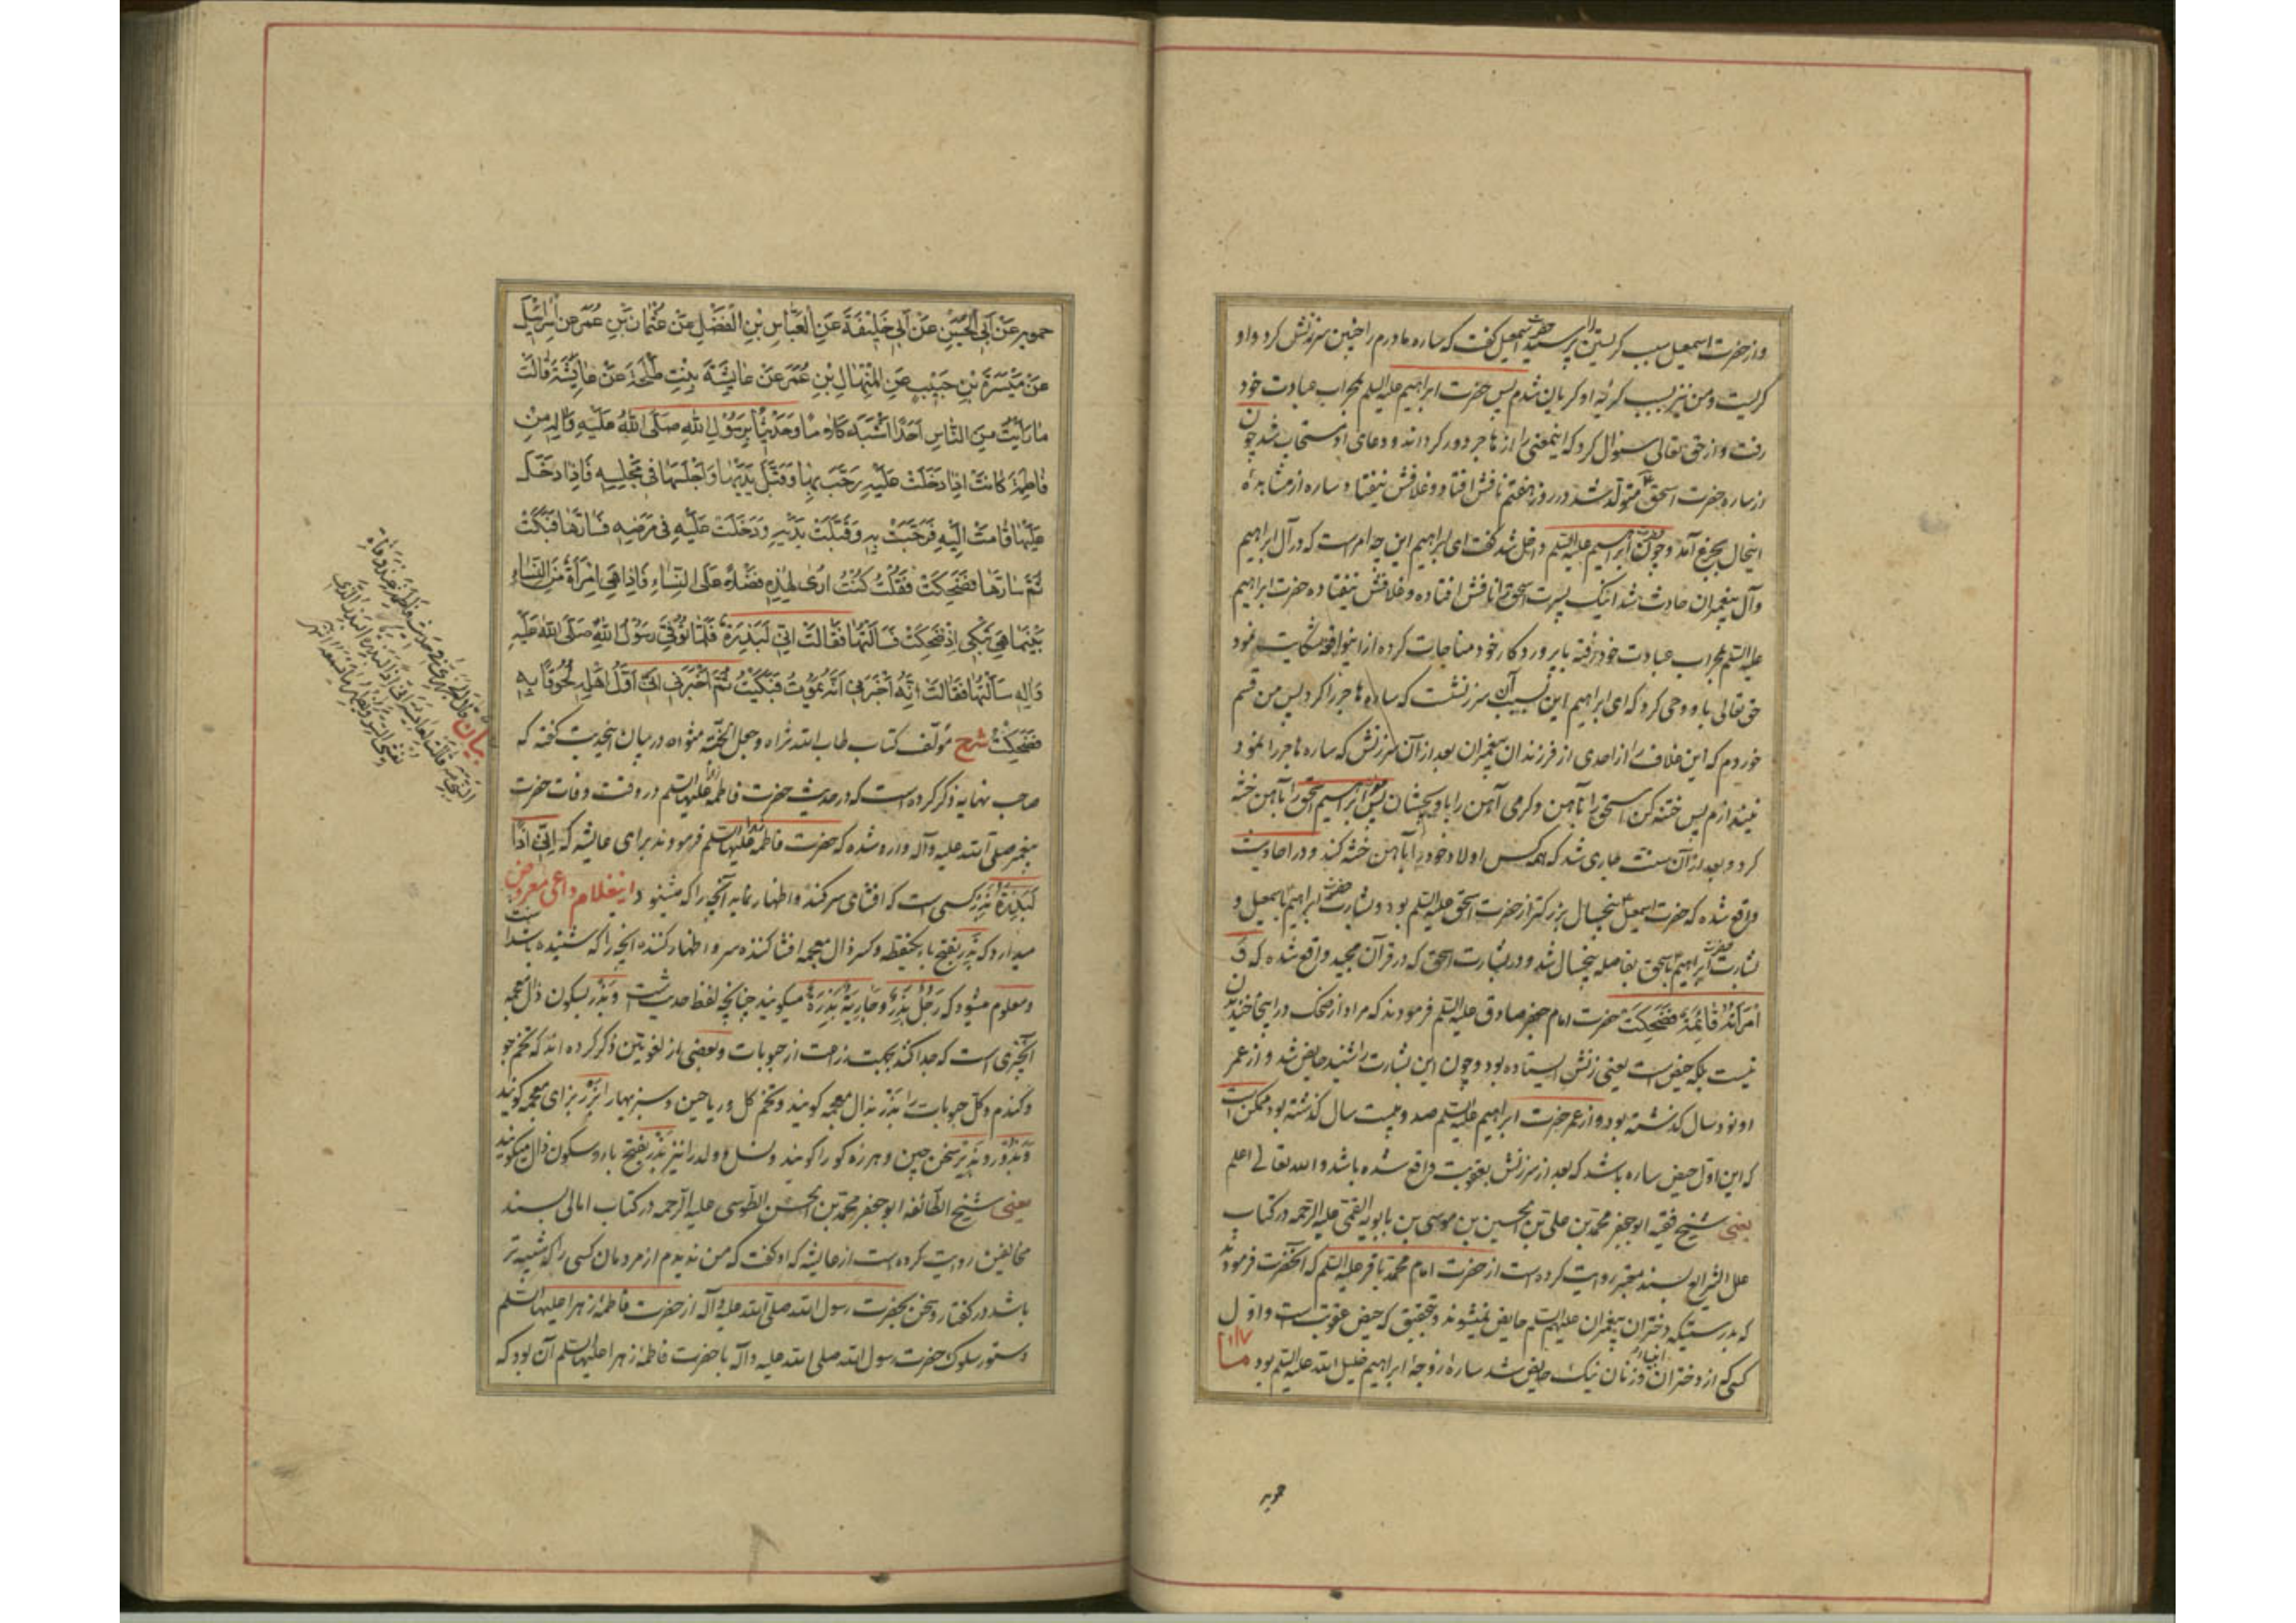 واز حضرت اسمعیل سبب کریستن را پرسید حضرت اسمعیل کفت که ساره مادرم را چنین سرزنش کرد و او
کریست و من نیز بسبب کریهٔ او کریان شدم پس حضرت ابراهیم علیه السلم بمحراب عبادت خود
رفت و از حق تعالی سئوال کرد که اینمعنی را از هاجر دور کرداند و دعای او مستجاب شد چون
از ساره حضرت اسحق متولد شد در روز هفتم نافش افتاد و غلافش نیفتاد ساره از مشاهدهٔ
اینحال بجزع آمد و چون حضرت ابراهیم علیه السلم داخل شد کفت ای ابراهیم این چه امر است که در آل ابراهیم
و آل پیغمبران حادث شد اینک پسرت اسحق نافش افتاده و غلافش نیفتاده حضرت ابراهیم
علیه السلم بمحراب عبادت خود رفته با پروردکار خود مناجات کرده از این واقعه شکایت نمود
حق تعالی باو وحی کرد که ای ابراهیم این بسبب آن سرزنشت که ساره هاجر را کرد پس من قسم
خوردم که این غلاف را از احدی از فرزندان پیغمبران بعد از آن سرزنش که ساره هاجر را نمود
نیندازم پس ختنه کن اسحق را بآهن و کرمی آهن را باو بچشان پس ابراهیم اسحق را بآهن ختنه
کرد و بعد از آن سنت جاری شد که همه کس اولاد خود را بآهن ختنه کند و در احادیث
واقع شده که حضرت اسمعیل پنجسال بزرکتر از حضرت اسحق علیه السلم بود و بشارت حضرت ابراهیم باسمعیل و
بشارت حضرت ابراهیم باسحق بفاصله پنجسال شد و در بشارت اسحق که در قرآن مجید واقع شده که وَ
اَمْرَأَتُهُ قَائِمَةٌ فَضَحِکَتْ حضرت امام جعفر صادق علیه السلم فرمودند که مراد از ضحک در اینجا خندیدن
نیست بلکه حیض است یعنی زنش ایستاده بود و چون این بشارت را شنید حایض شد و از عمر
او نود سال کذشته بود و از عمر حضرت ابراهیم علیه السلم صد و بیست سال کذشته بود ممکن است
که این اول حیض ساره باشد که بعد از سرزنش بعقوبت واقع شده باشد والله تعالی اعلم
یعنی شیخ فقیه ابو جعفر محمد بن علی بن الحسین بن موسی بن بابویه القمی علیه الرحمه در کتاب
علل الشرایع بسند معتبر روایت کرده است از حضرت امام محمد باقر علیه السلم که آنحضرت فرمودند
که بدرستیکه دختران پیغمبران علیهم السلم حایض نمیشوند و بتحقیق که حیض عقوبت است و اول
کسی که از دختران انبیا و زنان نیک حایض شد سارهٔ زوجهٔ ابراهیم خلیل الله علیه السلم بود ما
حمویه عَنْ اَبِی الْحُسَیْنِ عَنْ اَبِی خَلِیْفَةَ عَنِ الْعَبَّاسِ بْنِ الْفَضْلِ عَنْ عُثْمَانَ بْنِ عُمَرَ عَنْ اِسْرَائِیلَ
عَنْ مَیْسَرَةَ بْنِ حَبِیْبٍ عَنِ الْمِنْهَالِ بْنِ عُمَرَ عَنْ عَایِشَةَ بِنْتِ طَلْحَةَ عَنْ عَایِشَةَ قَالَتْ
مَا رَاَیْتُ مِنَ النَّاسِ اَحَدًا اَشْبَهَ کَلَامًا وَحَدِیْثًا بِرَسُوْلِ اللهِ صَلَّی اللهُ عَلَیْهِ وَآلِهِ مِنْ
فَاطِمَةَ کَانَتْ اِذَا دَخَلَتْ عَلَیْهِ رَحَّبَ بِهَا وَقَبَّلَ یَدَیْهَا وَاَجْلَسَهَا فِی مَجْلِسِهِ فَاِذَا دَخَلَ
عَلَیْهَا قَامَتْ اِلَیْهِ فَرَحَّبَتْ بِهِ وَقَبَّلَتْ یَدَیْهِ وَدَخَلَتْ عَلَیْهِ فِی مَرَضِهِ فَسَارَّهَا فَبَکَتْ
ثُمَّ سَارَّهَا فَضَحِکَتْ فَقُلْتُ کُنْتُ اَرَی لِهٰذِهِ فَضْلًا عَلَی النِّسَاءِ فَاِذَا هِیَ اِمْرَاَةٌ مِنَ النِّسَاءِ
بَیْنَمَا هِیَ تَبْکِی اِذْ ضَحِکَتْ فَسَاَلْتُهَا فَقَالَتْ اِنِّی لَبَذِرَةٌ فَلَمَّا تُوُفِّیَ رَسُوْلُ اللهِ صَلَّی اللهُ عَلَیْهِ
وَآلِهِ سَاَلْتُهَا فَقَالَتْ اِنَّهُ اَخْبَرَنِی اَنَّهُ یَمُوْتُ فَبَکَیْتُ ثُمَّ اَخْبَرَنِی اَنِّی اَوَّلُ اَهْلِهِ لُحُوْقًا بِهِ
فَضَحِکْتُ شرح مؤلف کتاب طاب الله ثراه وجعل الجنة مثواه در بیان اینحدیث کفته که
صاحب نهایه ذکر کرده است که در حدیث حضرت فاطمه علیها السلم در وقت وفات حضرت
پیغمبر صلی الله علیه وآله وارد شده که حضرت فاطمه علیها السلم فرمودند برای عایشه که اِنِّی اِذًا
لَبَذِرَةٌ بَذِر کسی است که افشای سر کند و اظهار نماید آنچه را که میشنود و اینغلام داعی معروض
میدارد که بَذِر بفتح باء یکنقطه و کسر ذال معجمه افشا کننده سر و اظهار کننده آنچه را که شنیده باشد است
و معلوم میشود که رَجُلٌ بَذِرٌ و جَارِیَةٌ بَذِرَةٌ میکویند چنانچه لفظ حدیث است و بَذْر بسکون ذال معجمه
آنچیزی است که جدا کنند بجهت زراعت از حبوبات و بعضی از لغویین ذکر کرده اند که تخم جو
و کندم و کل حبوبات را بَذْر بذال معجمه کویند و تخم کل و ریاحین و سبزیها را بَزْر بزای معجمه کویند
و بَذُور و بَذِیر سخن چین و هرزه کو را کویند و نسل و ولد را نیز بَذْر بفتح باء و سکون ذال میکویند
یعنی شیخ الطائفه ابو جعفر محمد بن الحسن الطوسی علیه الرحمه در کتاب امالی بسند
مخالفین روایت کرده است از عایشه که او کفت که من ندیدم از مردمان کسی را که شبیه تر
باشد در کفتار و سخن بحضرت رسول الله صلی الله علیه وآله از حضرت فاطمهٔ زهرا علیها السلم
و دستور سلوک حضرت رسول الله صلی الله علیه وآله با حضرت فاطمهٔ زهرا علیها السلم آن بود که
بیان
حمویه